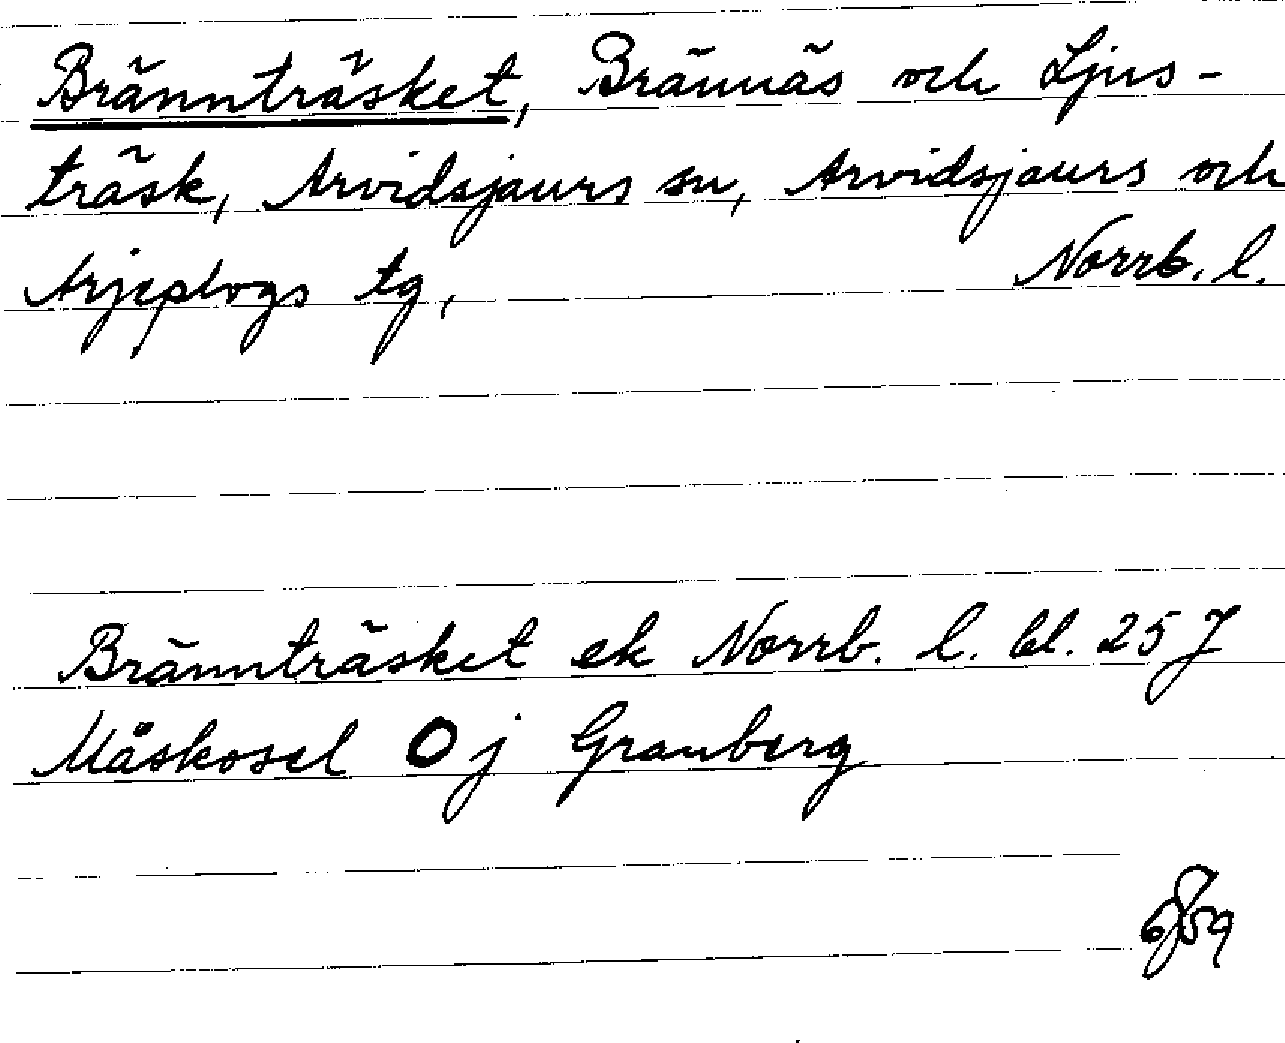 Brännträsket, Brännäs och Ljus-
träsk, Arvidsjaurs sn, Arvidsjaurs och
Arjeplogs tg, Norrb. l.
Brännträsket ek Norrb. l. bl. 25 J
Måskosel O j Granberg